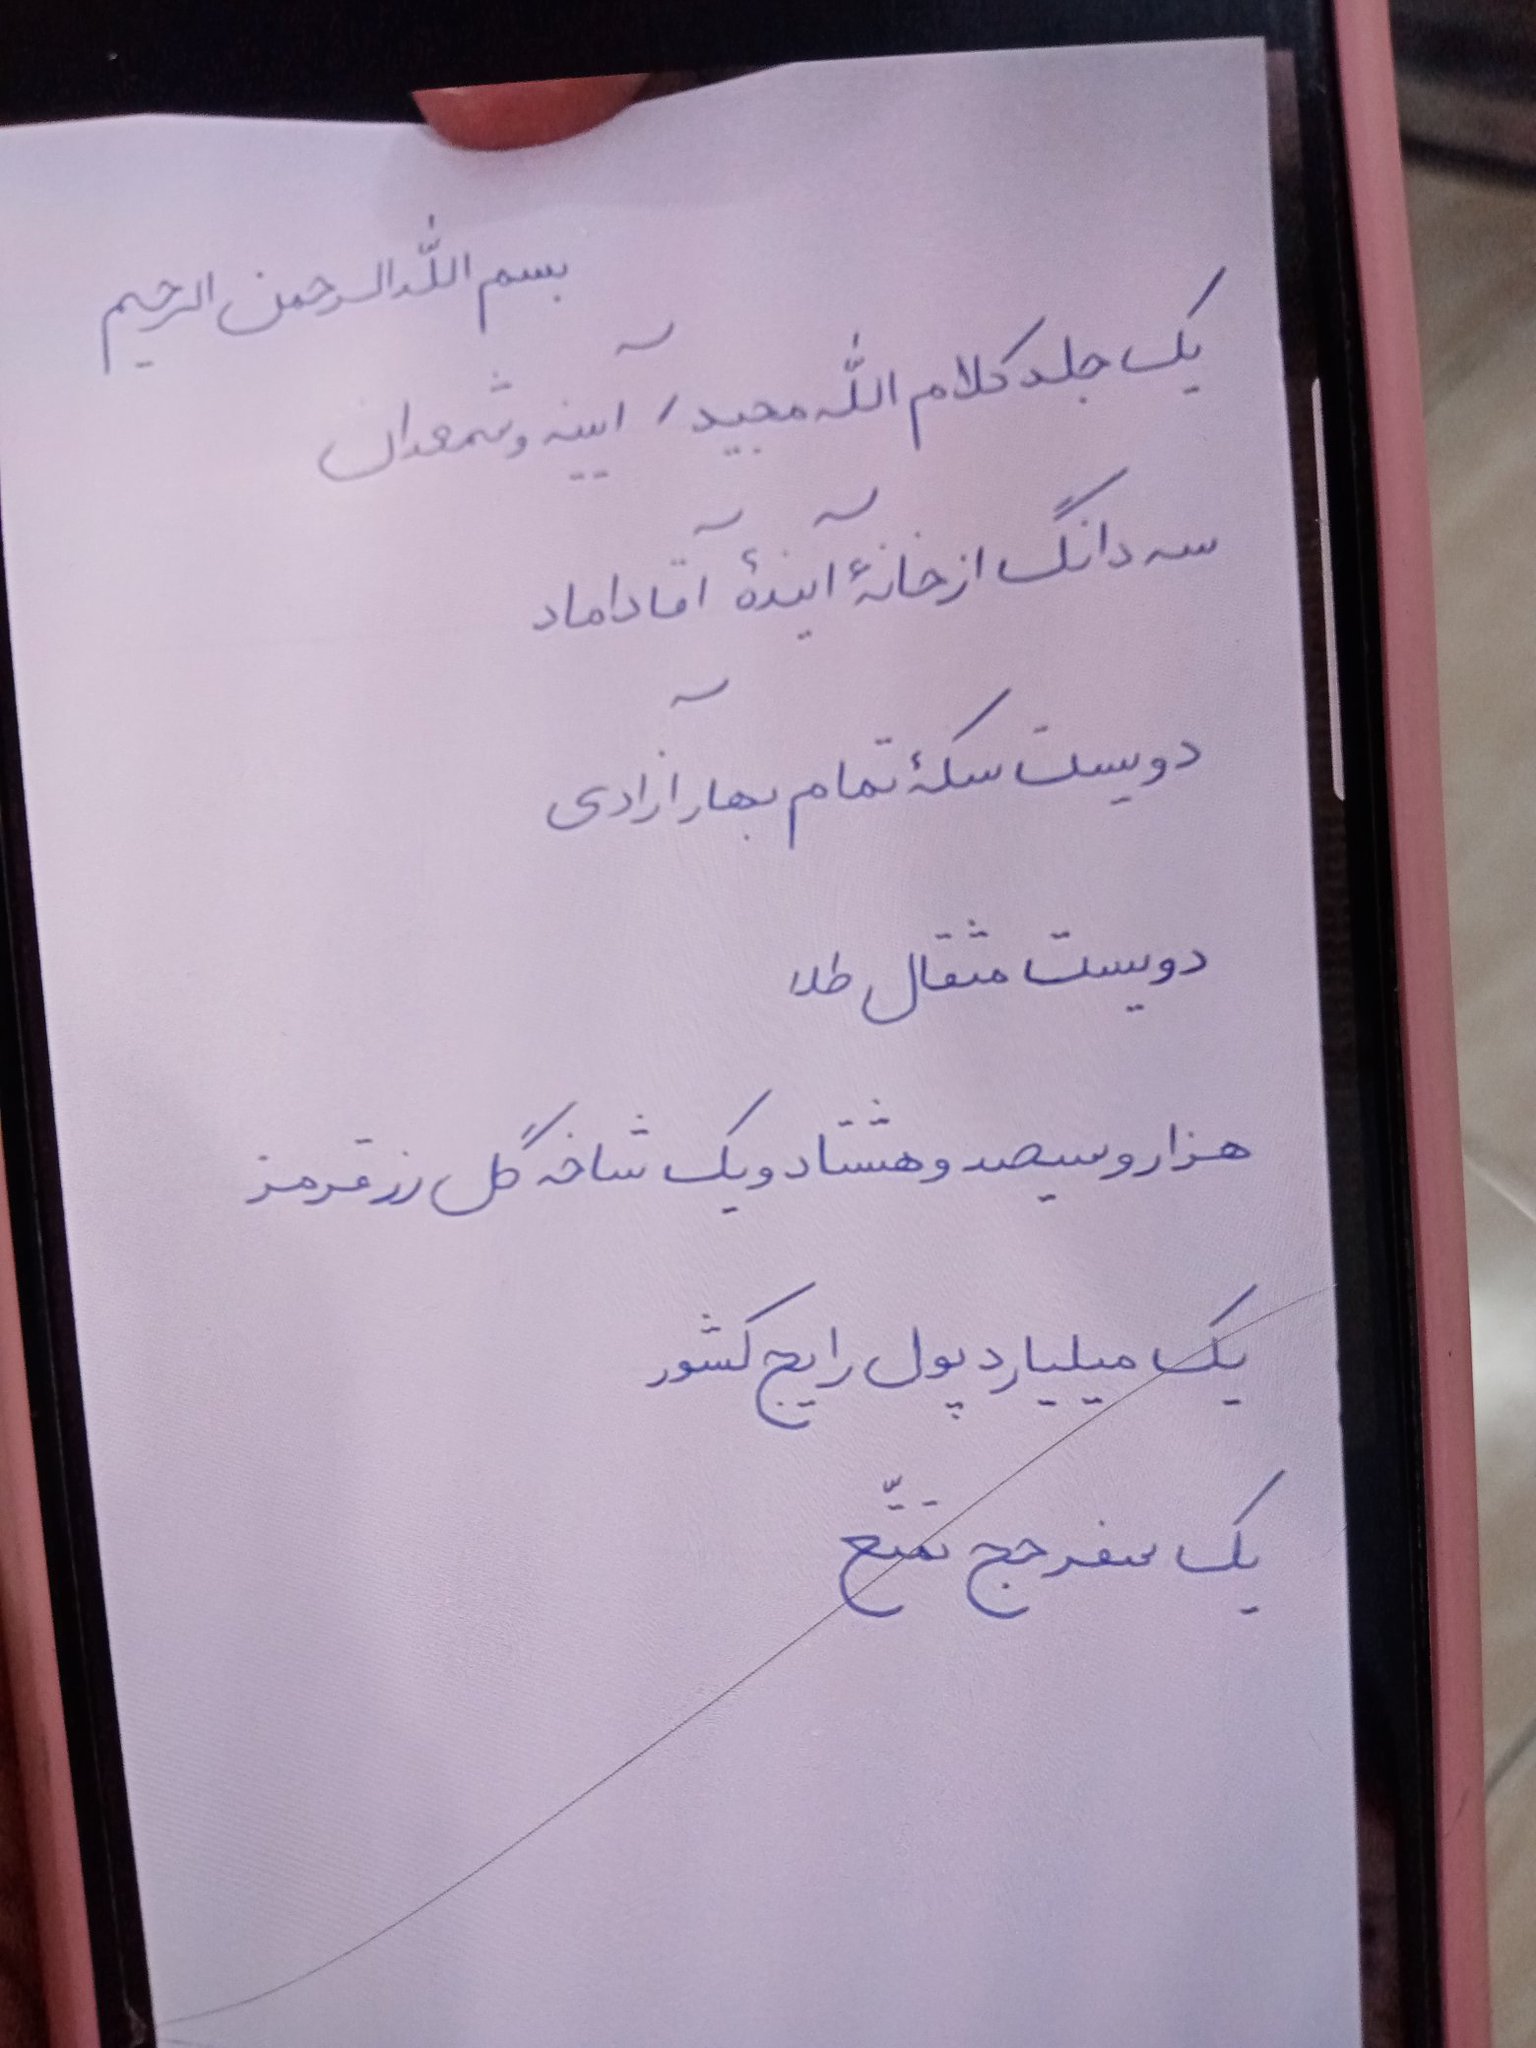 بسم اللّٰه الرحمن الرحیم
یک جلد کلام اللّٰه مجید / آیینه و شمعدان
سه دانگ از خانهٔ آیندهٔ آقا داماد
دویست سکهٔ تمام بهار آزادی
دویست مثقال طلا
هزار و سیصد و هشتاد و یک شاخه گل رز قرمز
یک میلیارد پول رایج کشور
یک سفر حج تمتّع